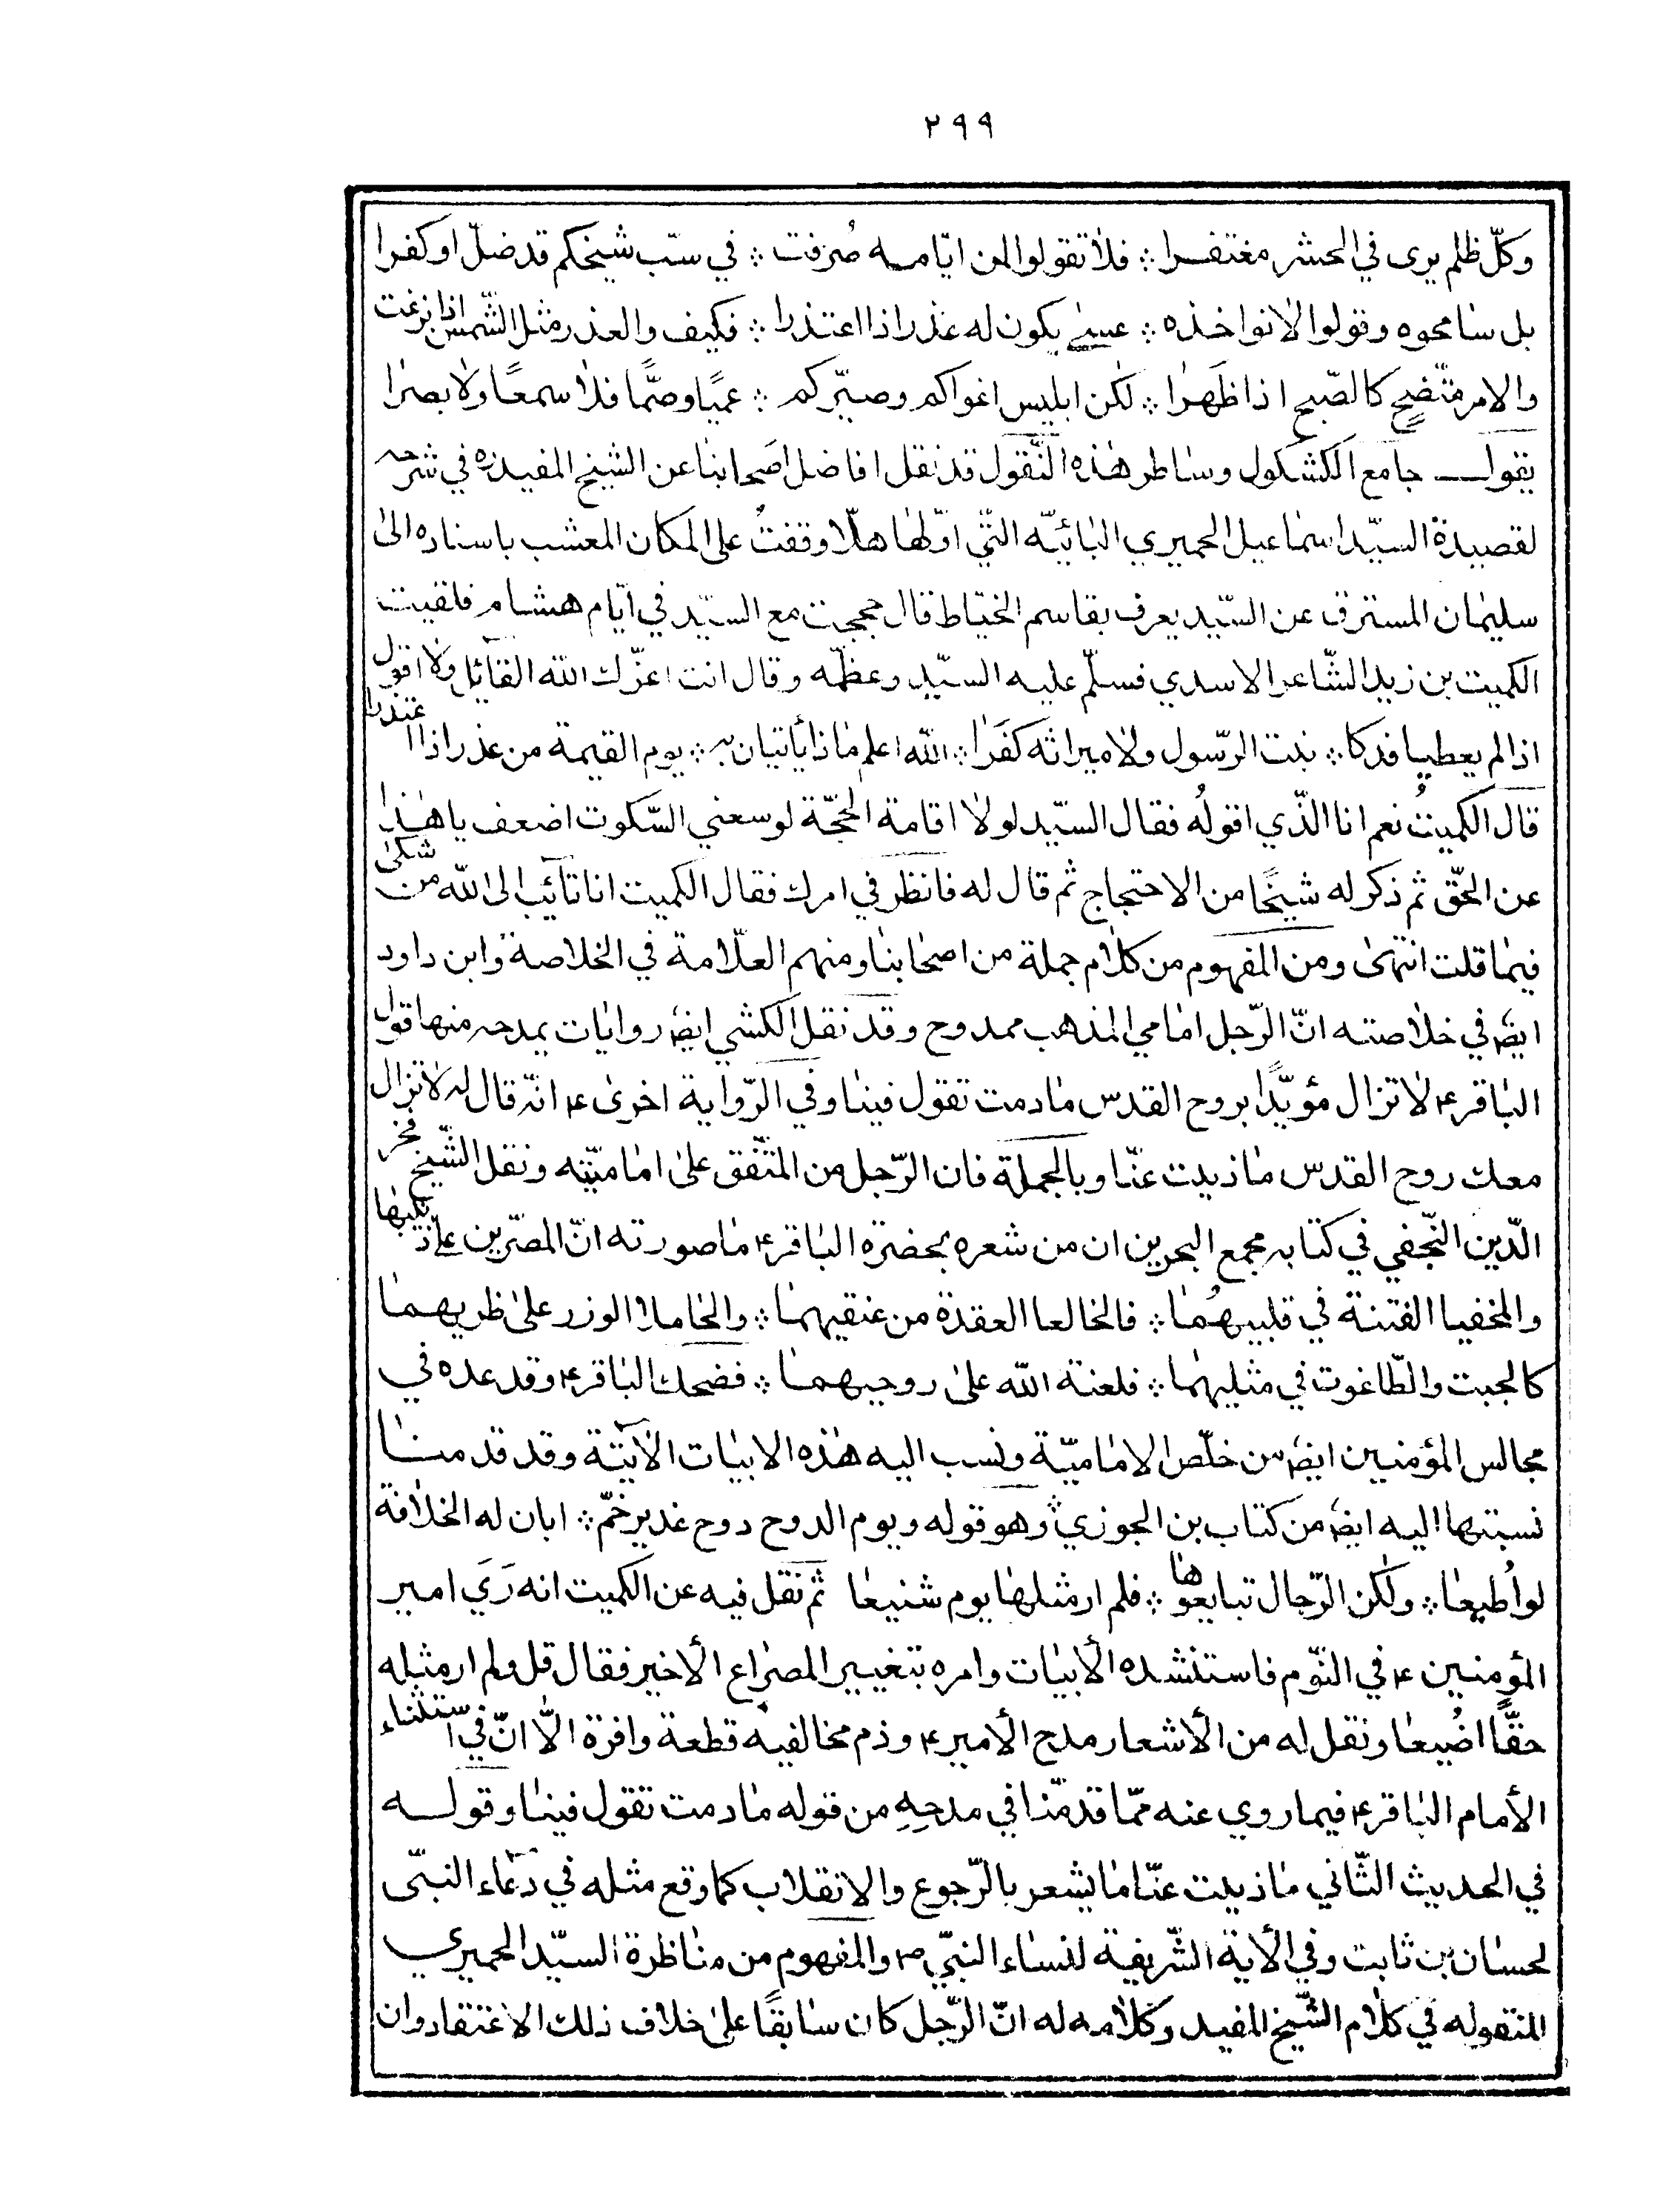 ٢٩٩
وكلّ ظلم يرى في الحشر مغتفرا ؞ فلا تقولوا لمن ايّامه صُرفت ؞ في سبّ شيخكم قد ضلّ او كفرا
بل سامحوه وقولوا لا نواخذه ؞ عسى يكون له عذر اذا اعتذرا ؞ فكيف والعذر مثل الشّمس اذا بزغت
والامر متّضح كالصّبح اذا ظَهَرا ؞ لكن ابليس اغواكم وصيّركم ؞ عميًا وصمًّا فلا سمعًا ولا بصرا
يقول جامع الكشكول وساطر هذه النّقول قد نقل افاضل اصحابنا عن الشيخ المفيد ره في شرحه
لقصيدة السيّد اسماعيل الحميري البائيّه التّي اوّلها هلّا وقفتُ على المكان المعشب باسناده الى
سليمان المسترق عن السيّد يعرف بقاسم الخيّاط قال حججت مع السيّد في ايّام هشام فلقيت
الكميت بن زيد الشّاعر الاسدي فسلّم عليه السيّد وعظّمه وقال انت اعزّك الله القائل ولا اقول
اذ الم يعطيا فدكا ؞ بنت الرّسول ولا ميراثه كفَرا ؞ الله اعلم ماذا يأتيان به ؞ يوم القيمة من عذر اذا اعتذرا
قال الكميتُ نعم انا الّذي اقولُه فقال السيّد لولا اقامة الحجّة لوسعني السّكوت اضعف يا هذا
عن الحقّ ثم ذكر له شيخًا من الاحتجاج ثم قال له فانظر في امرك فقال الكميت انا تآئب الى الله من شكى
فيما قلت انتهى ومن المفهوم من كلام جملة من اصحابنا ومنهم العلّامة في الخلاصة وابن داود
ايضا في خلاصته انّ الرّجل امامي المذهب ممدوح وقد نقل الكشي ايضا روايات بمدحه منها قول
الباقر ع لا تزال مؤيّدًا بروح القدس مادمت تقول فينا وفي الرّواية اخرى ع انّه قال له لا تزال
معك روح القدس ماذبيت عنّا وبالجملة فان الرّجل من المتّفق على اماميّته ونقل الشّيخ فخر
الدّين النّجفي في كتابه مجمع البحرين ان من شعره بحضرة الباقر ع ما صورته انّ المصرّين على ذنبيهما
والمخفيا الفتنة في قلبيهُما ؞ فالخالعا العقدة من عنقيهما ؞ والحاملا الوزر على ظهريهما
كالجبت والطّاغوت في مثليهما ؞ فلعنة الله على روحيهما ؞ فضحك الباقر ع وقد عده في
مجالس المؤمنين ايضا من خلّص الاماميّة ونسب اليه هذه الابيات الآتية وقد قدمنا
نسبتها اليه ايضا من كتاب بن الجوزي وهو قوله ويوم الدوح دوح غدير خمّ ؞ ابان له الخلافة
لو اُطيعا ؞ ولكن الرّجال تبايعوها ؞ فلم ار مثلها يوم شنيعا ثم نقل فيه عن الكميت انه رَيَ امير
المؤمنين ع في النّوم فاستنشده الأبيات وامره بتغيير المصراع الأخير فقال قل ولم ار مثله
حقًّا اضُيعا ونقل له من الأشعار مدح الأمير ع وذم مخالفيه قطعة وافرة الّا انّ في استثناء
الأمام الباقر ع فيما روي عنه ممّا قدّمنا في مدحِهِ من قوله مادمت تقول فينا وقوله
في الحديث الثّاني ماذبيت عنّا ما يشعر بالرّجوع والانقلاب كما وقع مثله في دعاء النبّى
لحسان بن ثابت وفي الأية الشّريفة لنساء النبيّ ص والمفهوم من مناظرة السيّد الحميري
المنقوله في كلام الشّيخ المفيد وكلامه له انّ الرّجل كان سابقًا على خلاف ذلك الاعتقاد وان